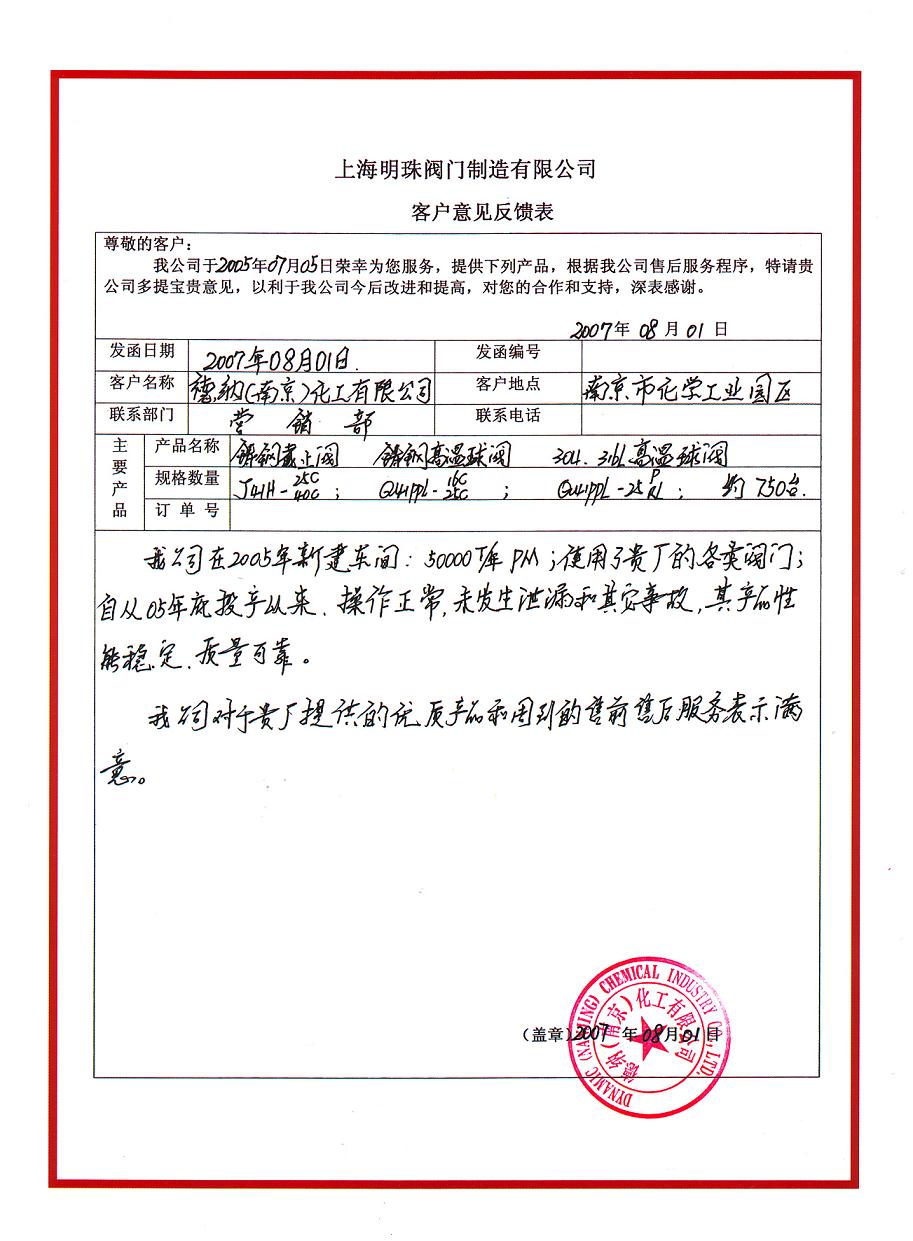 上海明珠阀门制造有限公司
客户意见反馈表
尊敬的客户：
我公司于2005年07月05日荣幸为您服务，提供下列产品，根据我公司售后服务程序，特请贵
公司多提宝贵意见，以利于我公司今后改进和提高，对您的合作和支持，深表感谢。
2007年 08月 01日
发函日期 2007年08月01日. 发函编号
客户名称 德纳(南京)化工有限公司 客户地点 南京市化学工业园区
联系部门 营销部 联系电话
主要产品
产品名称 铸钢截止阀 铸钢高温球阀 304. 316L高温球阀
规格数量 J41H-25C/40C； Q41PPL-16C/25C； Q41PPL-25P/RL； 约750台.
订单号
我公司在2005年新建车间：50000T/年 PM；使用了贵厂的各类阀门；
自从05年底投产以来、操作正常，未发生泄漏和其它事故，其产品性
能稳定、质量可靠。
我公司对于贵厂提供的优质产品和周到的售前售后服务表示满
意。
（盖章）2007年08月01日
DYNAMIC (NANJING) CHEMICAL INDUSTRY CO., LTD.
德纳(南京)化工有限公司